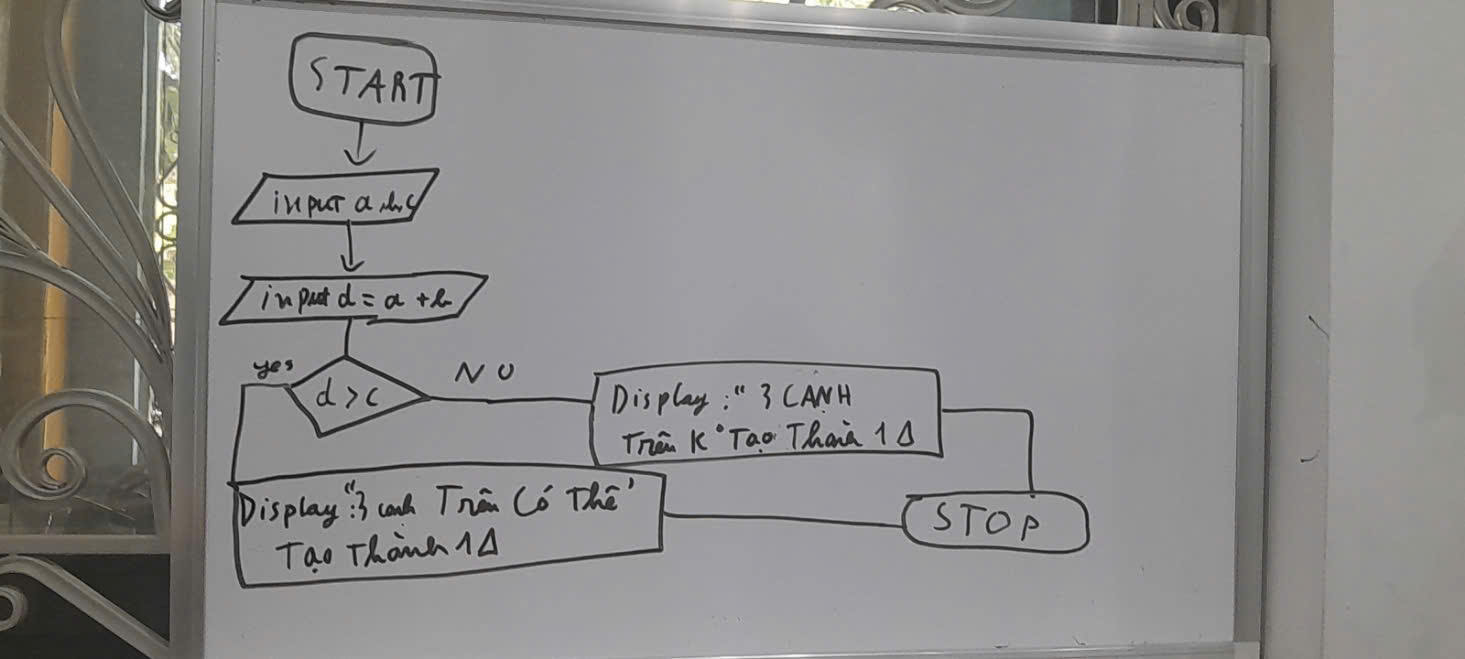 START
input a,b,c
input d = a + b
yes
d > c
NO
Display : " 3 CẠNH
Trên K° Tạo Thành 1 Δ
Display : " 3 cạnh Trên Có Thể "
Tạo Thành 1 Δ
STOP